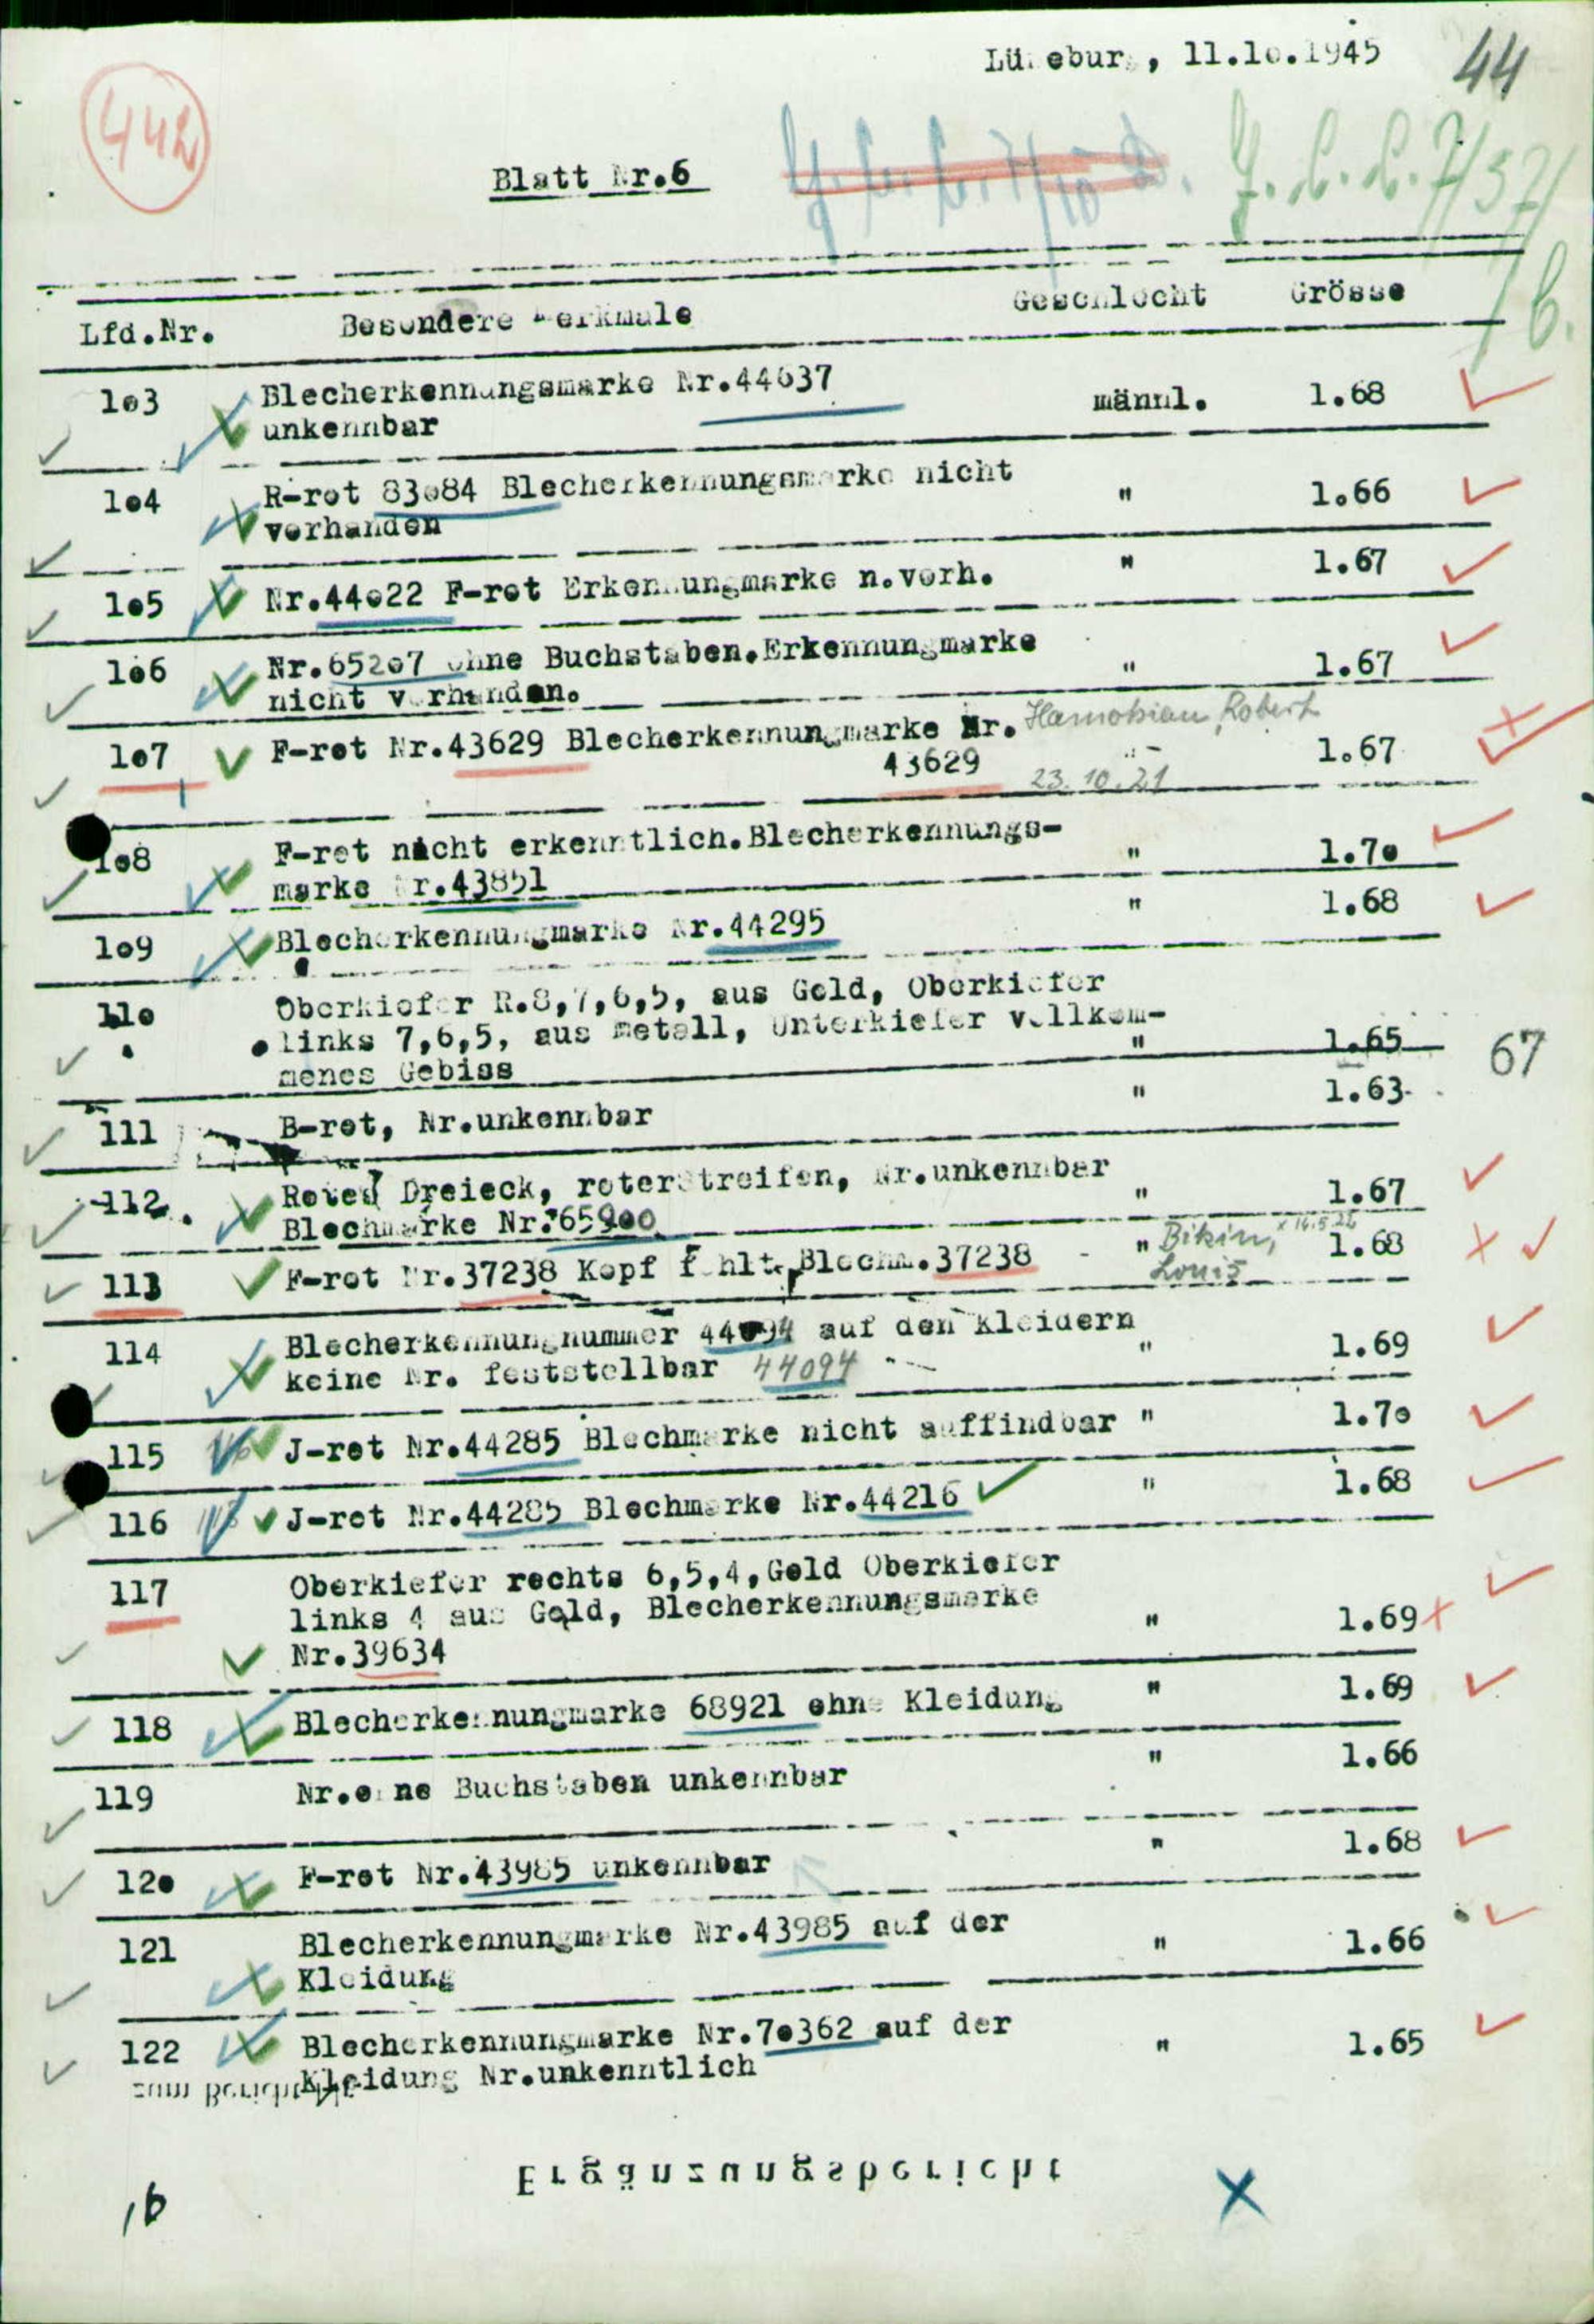 Lüneburg, 11.10.1945
44
442
Blatt Nr.6
Lfd.Nr. Besondere Merkmale Geschlecht Grösse
103 Blecherkennungsmarke Nr.44637 männl. 1.68
unkennbar
104 R-rot 83084 Blecherkennungsmarke nicht " 1.66
vorhanden
105 Nr.44022 F-rot Erkennungmarke n.vorh. " 1.67
106 Nr.65207 ohne Buchstaben.Erkennungmarke " 1.67
nicht vorhanden.
107 F-rot Nr.43629 Blecherkennungmarke Nr. Robert
43629 " 1.67
23.10.21
108 F-rot nicht erkenntlich.Blecherkennungs-
marke Nr.43851 " 1.70
109 Blecherkennungmarke Nr.44295 " 1.68
110 Oberkiefer R.8,7,6,5, aus Gold, Oberkiefer
links 7,6,5, aus Metall, Unterkiefer vollkom-
menes Gebiss " 1.65
67
111 B-rot, Nr.unkennbar " 1.63
112. Rotes Dreieck, roterStreifen, Nr.unkennbar
Blechmarke Nr.65900 " 1.67
113 F-rot Nr.37238 Kopf fehlt, Blechm.37238 " Bikin, 1.68
Louis
114 Blecherkennungnummer 44094 auf den Kleidern
keine Nr. feststellbar 44094 " 1.69
115 J-rot Nr.44285 Blechmarke nicht auffindbar " 1.70
116 J-rot Nr.44285 Blechmarke Nr.44216 " 1.68
117 Oberkiefer rechts 6,5,4,Gold Oberkiefer
links 4 aus Gold, Blecherkennungsmarke " 1.69
Nr.39634
118 Blecherkennungmarke 68921 ohne Kleidung " 1.69
119 Nr.ohne Buchstaben unkennbar " 1.66
120 F-rot Nr.43985 unkennbar " 1.68
121 Blecherkennungmarke Nr.43985 auf der
Kleidung " 1.66
122 Blecherkennungmarke Nr.70362 auf der
Kleidung Nr.unkenntlich " 1.65
zum Bericht
Ergänzungsbericht
16